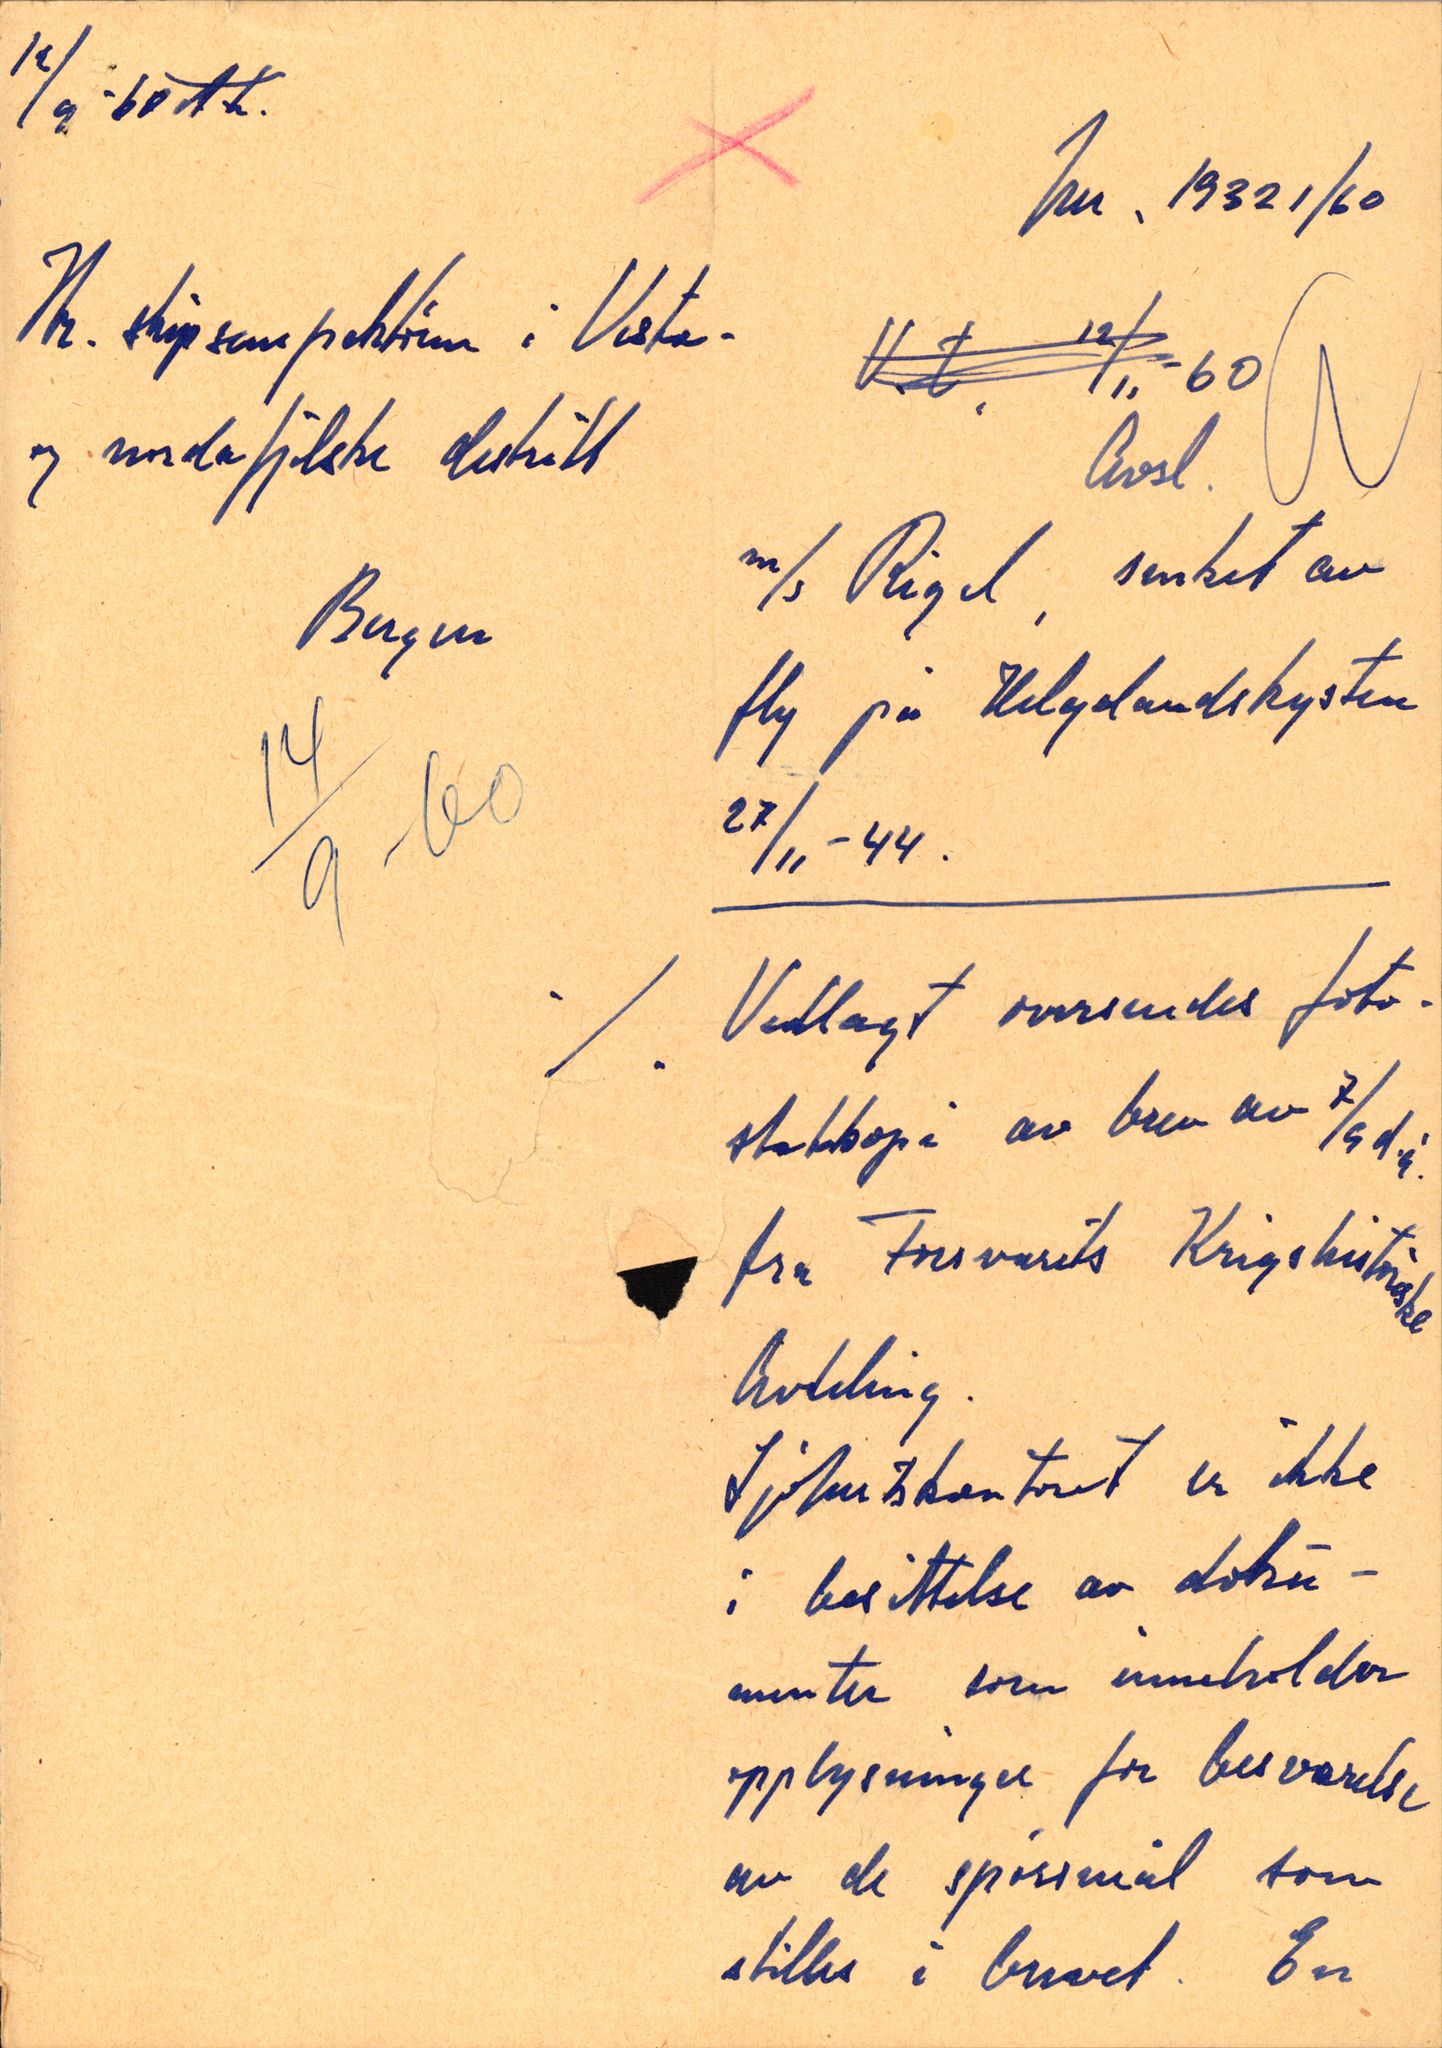 12/9-60 At.
Jnr. 19321/60
Hr. skipsinspektören i Vesta-
og nordafjelske distrikt
Bergen
14/9-60
V.t. 12/11-60
Avsl.
m/s Rigel, senket av
fly på Helgelandskysten
27/11-44.
./. Vedlagt oversendes foto-
statkopi av brev av 7/9 d.å.
fra Forsvarets Krigshistoriske
Avdeling.
Sjöfartskontoret er ikke
i besittelse av doku-
menter som inneholder
opplysninger for besvarelse
av de spörsmål som
stilles i brevet. En